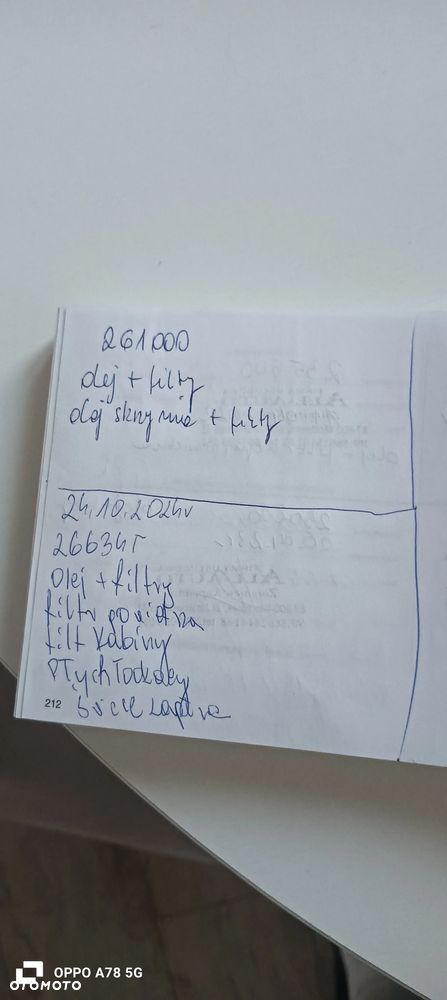 261000
olej + filty
olej skrzynia + filty
24.10.2024r
266347
Olej + filtry
filtr powietrza
filt Kabiny
Płych łodzący
Świce zapłce
212
OPPO A78 5G
OTOMOTO